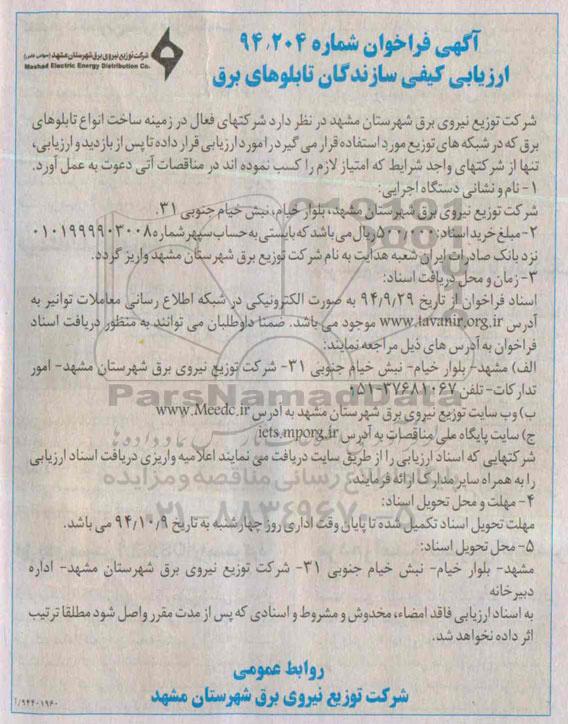 آگهی فراخوان شماره ۹۴،۲۰۴
ارزیابی کیفی سازندگان تابلوهای برق
شرکت توزیع نیروی برق شهرستان مشهد (سهامی خاص)
Mashad Electric Energy Distribution Co.
شرکت توزیع نیروی برق شهرستان مشهد در نظر دارد شرکتهای فعال در زمینه ساخت انواع تابلوهای
برق که در شبکه های توزیع مورد استفاده قرار می گیرد را مورد ارزیابی قرار داده تا پس از بازدید و ارزیابی،
تنها از شرکتهای واجد شرایط که امتیاز لازم را کسب نموده اند در مناقصات آتی دعوت به عمل آورد.
۱- نام و نشانی دستگاه اجرایی:
شرکت توزیع نیروی برق شهرستان مشهد، بلوار خیام، نبش خیام جنوبی ۳۱.
۲- مبلغ خرید اسناد: ۵۰۰،۰۰۰ ریال می باشد که بایستی به حساب سپهر شماره ۰۱۰۱۹۹۹۹۰۳۰۰۸
نزد بانک صادرات ایران شعبه هدایت به نام شرکت توزیع برق شهرستان مشهد واریز گردد.
۳- زمان و محل دریافت اسناد:
اسناد فراخوان از تاریخ ۹۴/۹/۲۹ به صورت الکترونیکی در شبکه اطلاع رسانی معاملات توانیر به
آدرس www.tavanir.org.ir موجود می باشد. ضمنا داوطلبان می توانند به منظور دریافت اسناد
فراخوان به آدرس های ذیل مراجعه نمایند:
الف) مشهد- بلوار خیام- نبش خیام جنوبی ۳۱- شرکت توزیع نیروی برق شهرستان مشهد- امور
تدارکات- تلفن ۳۷۶۸۱۰۶۷-۰۵۱
ب) وب سایت توزیع نیروی برق شهرستان مشهد به آدرس www.Meedc.ir
ج) سایت پایگاه ملی مناقصات به آدرس iets.mporg.ir
شرکتهایی که اسناد ارزیابی را از طریق سایت دریافت می نمایند اعلامیه واریزی دریافت اسناد ارزیابی
را به همراه سایر مدارک ارائه فرمایند.
۴- مهلت و محل تحویل اسناد:
مهلت تحویل اسناد تکمیل شده تا پایان وقت اداری روز چهارشنبه به تاریخ ۹۴/۱۰/۹ می باشد.
۵- محل تحویل اسناد:
مشهد- بلوار خیام- نبش خیام جنوبی ۳۱- شرکت توزیع نیروی برق شهرستان مشهد- اداره
دبیرخانه
به اسناد ارزیابی فاقد امضاء، مخدوش و مشروط و اسنادی که پس از مدت مقرر واصل شود مطلقا ترتیب
اثر داده نخواهد شد.
روابط عمومی
شرکت توزیع نیروی برق شهرستان مشهد
ParsNamadData
۰۲۱-۸۸۳۴۹۶۷۰-۵